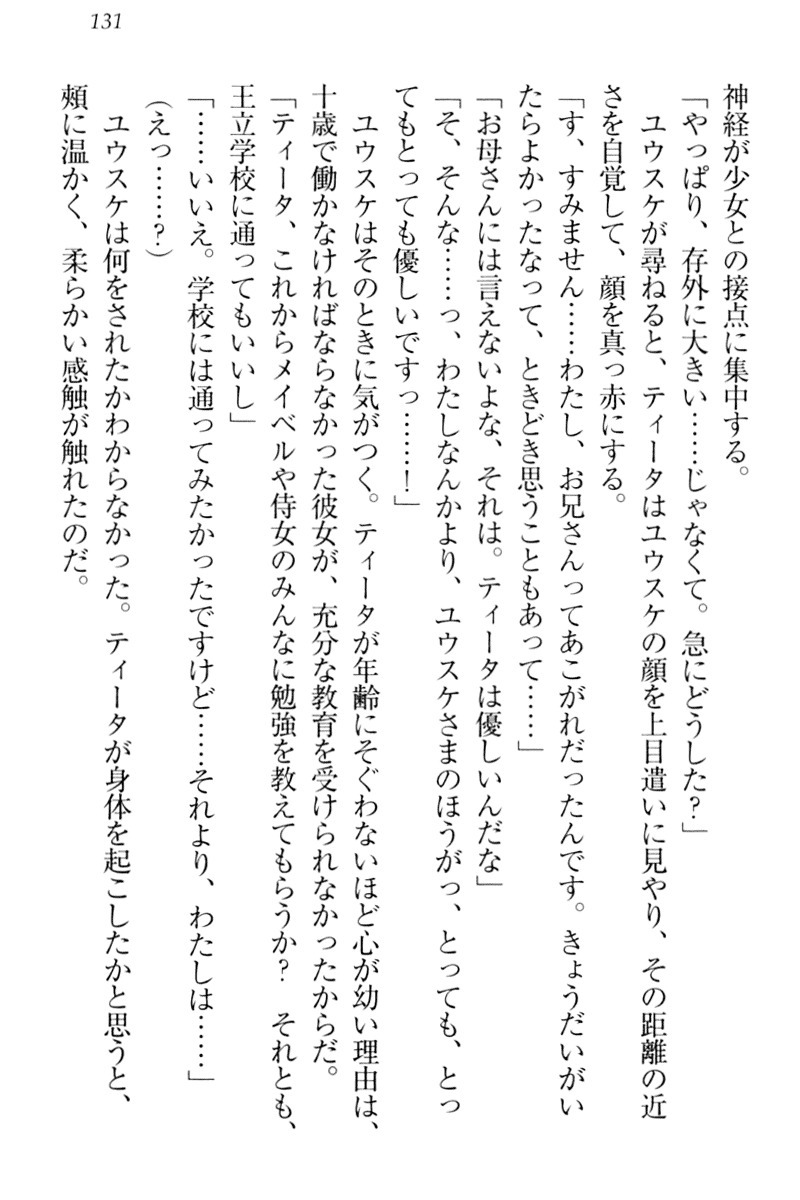 131
神経が少女との接点に集中する。
「やっぱり、存外に大きい……じゃなくて。急にどうした？」
　ユウスケが尋ねると、ティータはユウスケの顔を上目遣いに見やり、その距離の近
さを自覚して、顔を真っ赤にする。
「す、すみません……わたし、お兄さんってあこがれだったんです。きょうだいがい
たらよかったなって、ときどき思うこともあって……」
「お母さんには言えないよな、それは。ティータは優しいんだな」
「そ、そんな……っ、わたしなんかより、ユウスケさまのほうがっ、とっても、とっ
てもとっても優しいですっ……！」
　ユウスケはそのときに気がつく。ティータが年齢にそぐわないほど心が幼い理由は、
十歳で働かなければならなかった彼女が、充分な教育を受けられなかったからだ。
「ティータ、これからメイベルや侍女のみんなに勉強を教えてもらうか？　それとも、
王立学校に通ってもいいし」
「……いいえ。学校には通ってみたかったですけど……それより、わたしは……」
（えっ……？）
　ユウスケは何をされたかわからなかった。ティータが身体を起こしたかと思うと、
頬に温かく、柔らかい感触が触れたのだ。